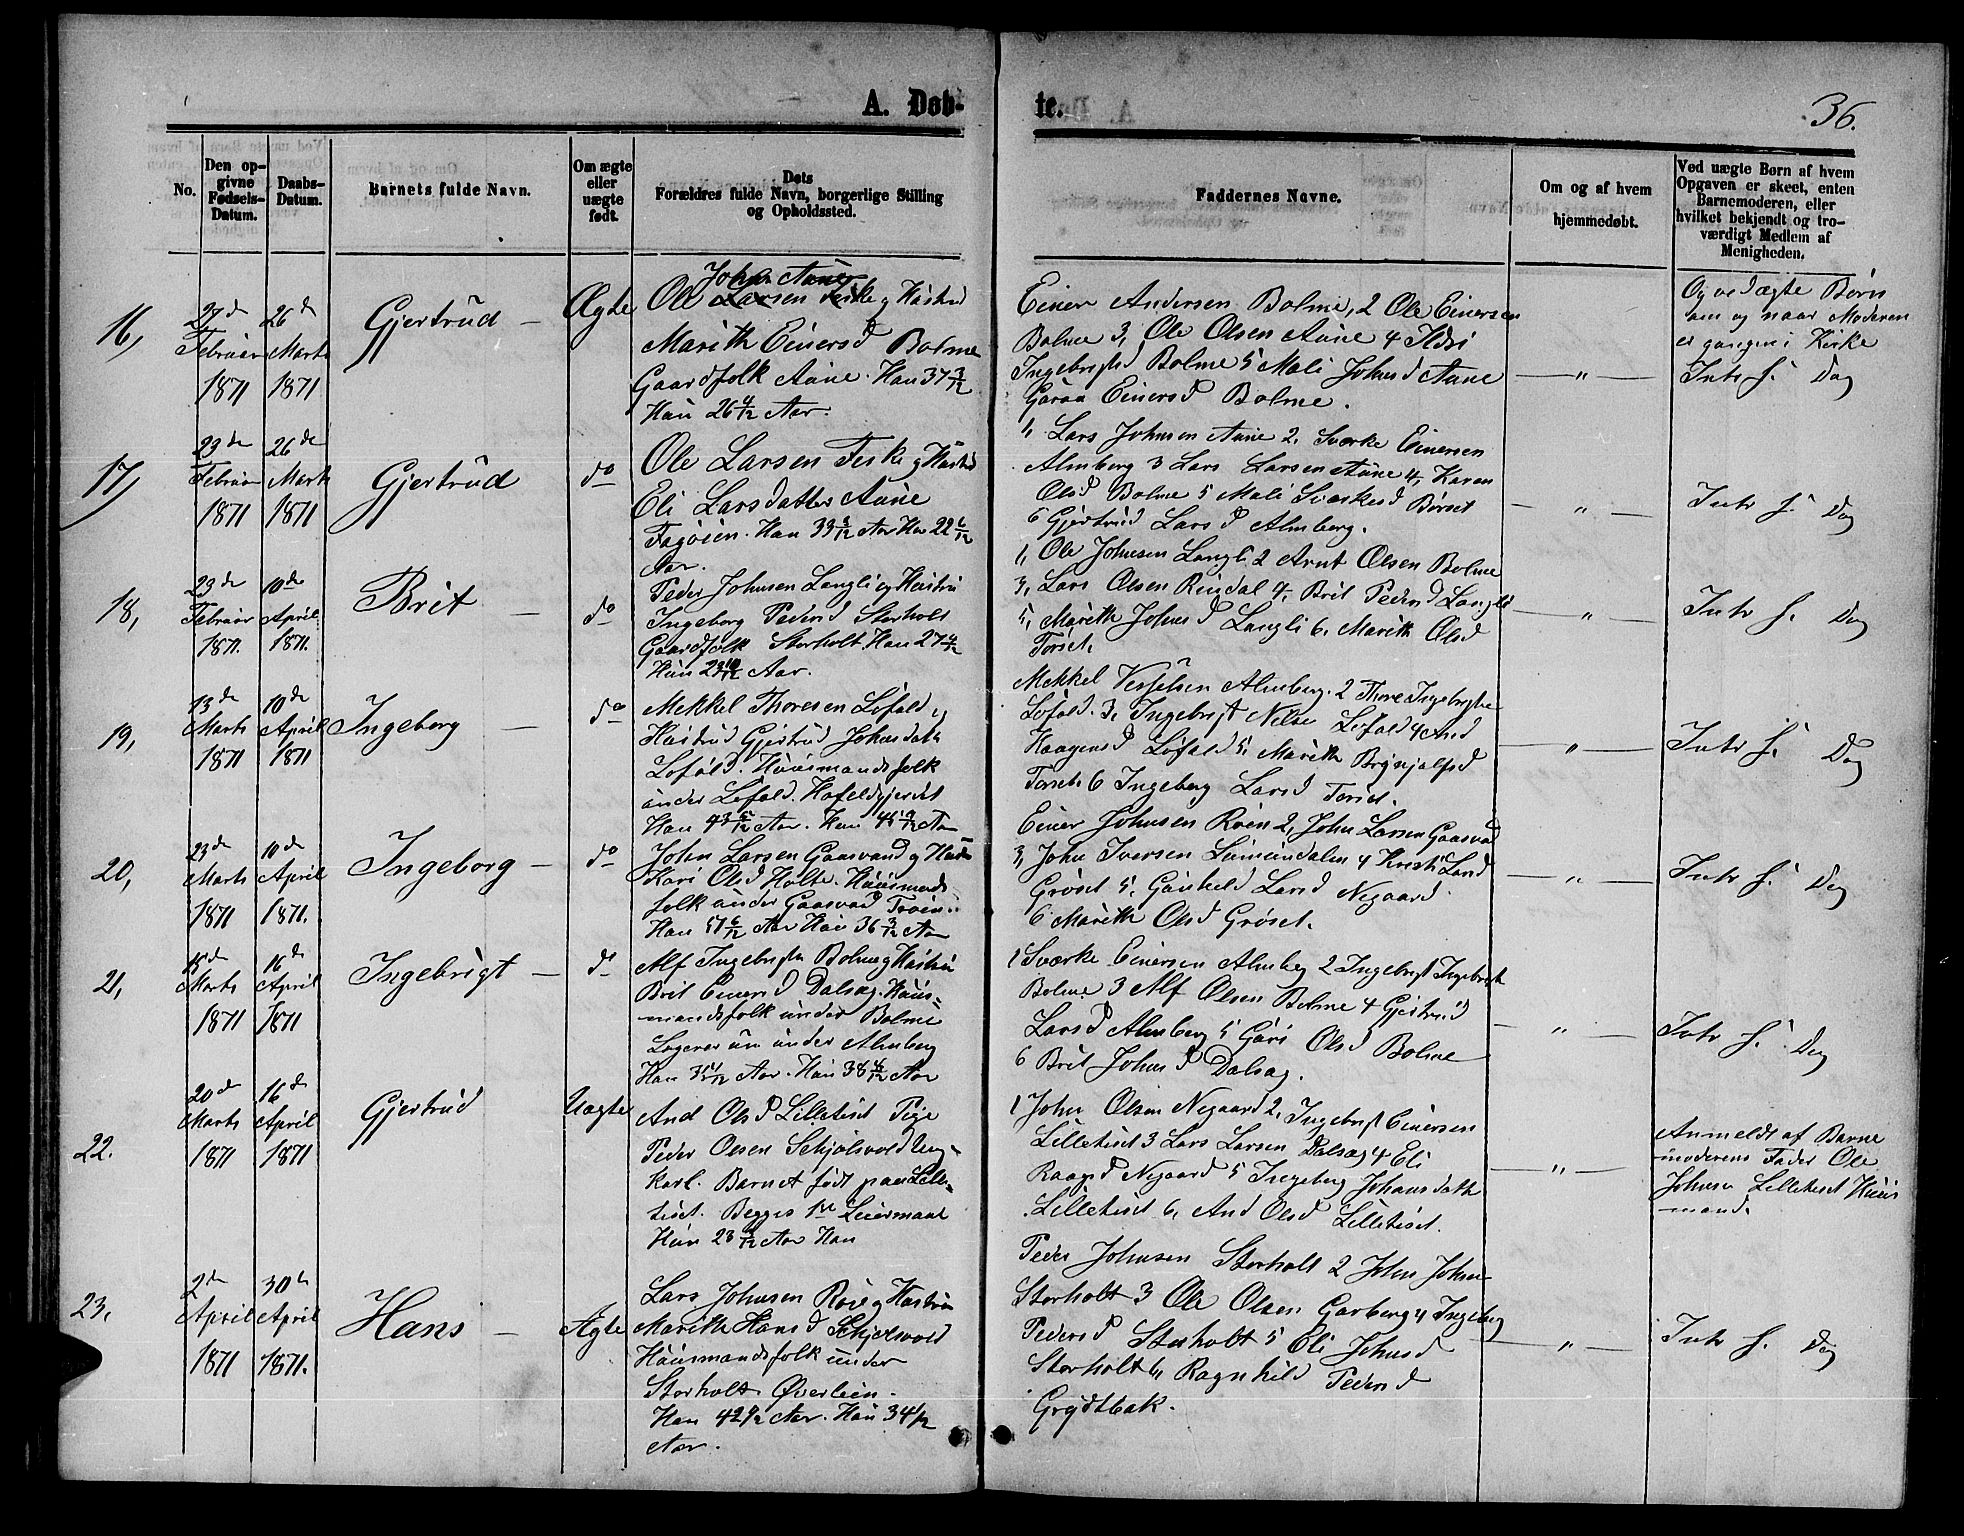 A. Døb-
te.
36.
No.
Den op-
givne
Fødsels-
Datum.
Daabs-
Datum.
Barnets fulde Navn.
Om ægte
eller
uægte
født.
Dets
Forældres fulde Navn, borgerlige Stilling
og Opholdssted.
Faddernes Navne.
Om og af hvem
hjemmedøbt.
Ved uægte Børn af hvem
Opgaven er skeet, enten
Barnemoderen, eller
hvilket bekjendt og tro-
værdigt Medlem af
Menigheden.
16,
27de
Februar
1871
26de
Marts
1871
Gjertrud —
Ægte
Johns Aune
Ole Larsen Feske og Hustru
Marith Einersd Bolme
Gaardfolk Aune. Han 37 3/12
Hun 26 4/12 Aar.
Einer Andersen Bolme, 2 Ole Einersen
Bolme 3, Ole Olsen Aune 4 Ildri
Ingebrigtsd Bolme 5 Mali Johnsd Aune
Guroa Einersd Bolme.
— " —
Og ved ægte Børn
om og naar Moderen
er gangen i Kirke
Intr s. Dag
17,
23de
Februar
1871
26de
Marts
1871
Gjertrud
do
Ole Larsen Feske og Hustru
Eli Larsdatter Aune
Fagøien. Han 33 3/12 Aar Hun 22 6/12
Aar.
1, Lars Johnsen Aune 2, Sværke Einersen
Almberg 3 Lars Larsen Aune 4, Karen
Olsd Bolme 5 Mali Sværkesd Børset
6 Gjertrud Larsd Almberg.
— " —
Intr s. Dag
18,
23de
Februar
1871.
10de
April
1871.
Brit —
do
Peder Johnsen Langli og Hustru
Ingeborg Pedersd Storholt
Gaardfolk Storholt. Han 27 4/12
Hun 23 10/12 Aar.
1, Ole Johnsen Langli 2 Arnt Olsen Bolme
3, Lars Olsen Rindal 4, Brit Pedersd Langli
5, Marith Johnsd Langli 6, Marith Olsd
Torset.
— " —
Intr s. Dag
19,
13de
Marts
1871
10de
April
1871
Ingeborg —
do
Mekkel Thoresen Løfald og
Hustrud Gjertrud Johnsdatt
Lofald. Huusmandsfolk
under Løfald. Hofeldgjerdet
Han 43 5/12 Aar. Hun 45 9/12 Aar
Mekkel Aimberg. 2 Thore Ingebrigtse
Løfald. 3, Ingebrigt Nilse Løfald 4 And
Haagensd Løfald 5, Marith Brynjulfsd
Torset 6 Ingeborg Larsd Torset.
— " —
Intr s. Dag
20,
23de
Marts
1871
10de
April
1871.
Ingeborg —
do
John Larsen Gaasvand og Hustru
Kari Olsd Holte. Huusmands-
folk under Gaasvad Troien.
Han 51 6/12 Aar Hun 36 3/12 Aar
Einer Johnsen Røen 2, John Larsen Gaasvad
3, John Iversen 4 Kristi Larsd
Grøset 5, Gunhild Larsd Negaard
6 Marith Olsd Grøset.
— " —
Intr s. Dag
21,
15de
Marts
1871
16de
April
1871
Ingebrigt —
do
Alf Ingebrigtse Bolme og Hustru
Brit Einersd Dalsæg. Huus-
mandsfolk under Bolme
Logerer nu under Almberg
Han 35 1/12 Aar. Hun 38 4/12 Aar
1 Sværke Einersen Almberg 2 Ingebrigt Ingebrigts
Bolme 3 Alf Olsen Bolme 4 Gjertrud
Larsd Almberg 5 Guri Olsd Bolme
6 Brit Johnsd Dalsæg.
— " —
Intr s. Dag
22.
20de
Marts
1871
16de
April
1871
Gjertrud
Uægte
And Olsd Lilletiset Pige
Peder Olsen Schjølsvold Ung-
karl. Barnet født paa Lille-
tiset. Begges 1ste Leiermaal
Hun 23 5/12 Aar Han
1 John Olsen Negaard 2, Ingebrigt Einersen
Lilletiset 3 Lars Larsen Dalsæg 4 Eli
Raagnd Negaard 5 Ingeborg Johansdatte
Lilletiset 6, And Olsd Lilletiset.
— " —
Anmeldt af Barne
moderens Fader Ole
Johnsen Lilletiset Huus
mand.
23.
2de
April
1871
30te
April
1871.
Hans —
Ægte
Lars Johnsen Røe og Hustru
Marith Hansd Schjølsvold
Huusmandsfolk under
Storholt Øverleien.
Han 42 9/12 Aar. Hun 34 1/12
Aar.
Peder Johnsen Storholt 2 John Johnse
Storholt 3 Ole Olsen Garberg 4 Ingeborg
Pedersd Storholt 5 Eli Johnsd
Storholt 6, Ragnhild Pedersd
Grydtbak.
— " —
Intr s. Dag